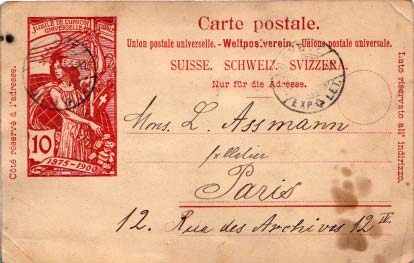 Carte postale.
Union postale universelle. - Weltpostverein. - Unione postale universale.
SUISSE. SCHWEIZ. SVIZZERA.
Nur für die Adresse.
Côté réservé à l'adresse.
Lato riservato all' indirizzo.
JUBILÉ DE L'UNION
UNIVERSELLE
10
1875-1900
EXP. LET.
Mons. L. Assmann
Paris
12. Rue des Archives 12 IV.